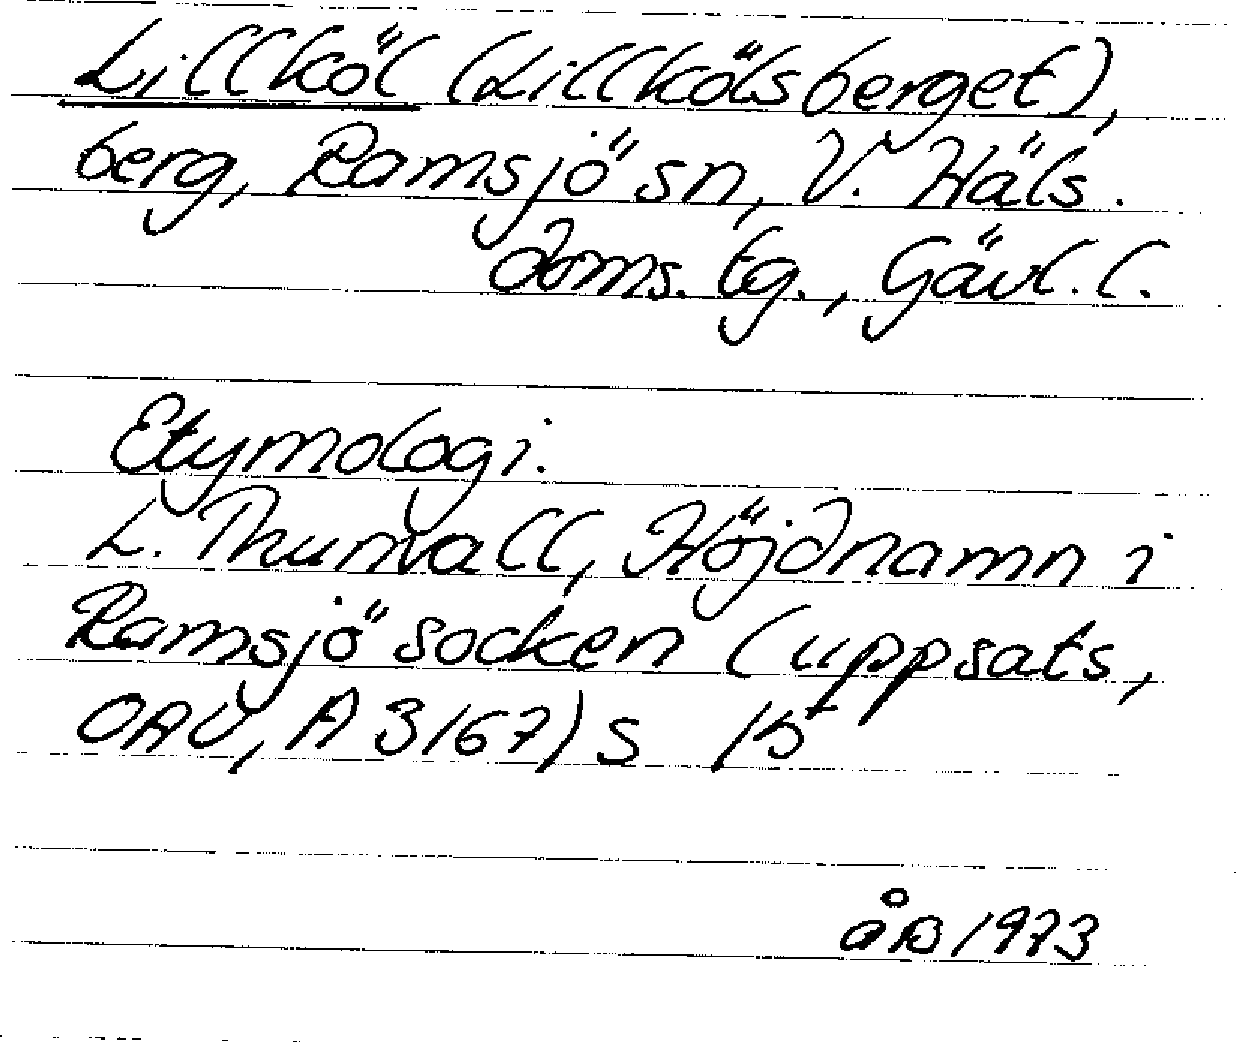 Lillköl (Lillkölsberget),
berg, Ramsjö sn, V. Häls.
doms. tg., Gävl. l.
Etymologi.
L. Thunvall, Höjdnamn i
Ramsjö socken (uppsats,
OAU, A 3167) s 15
åB 1973